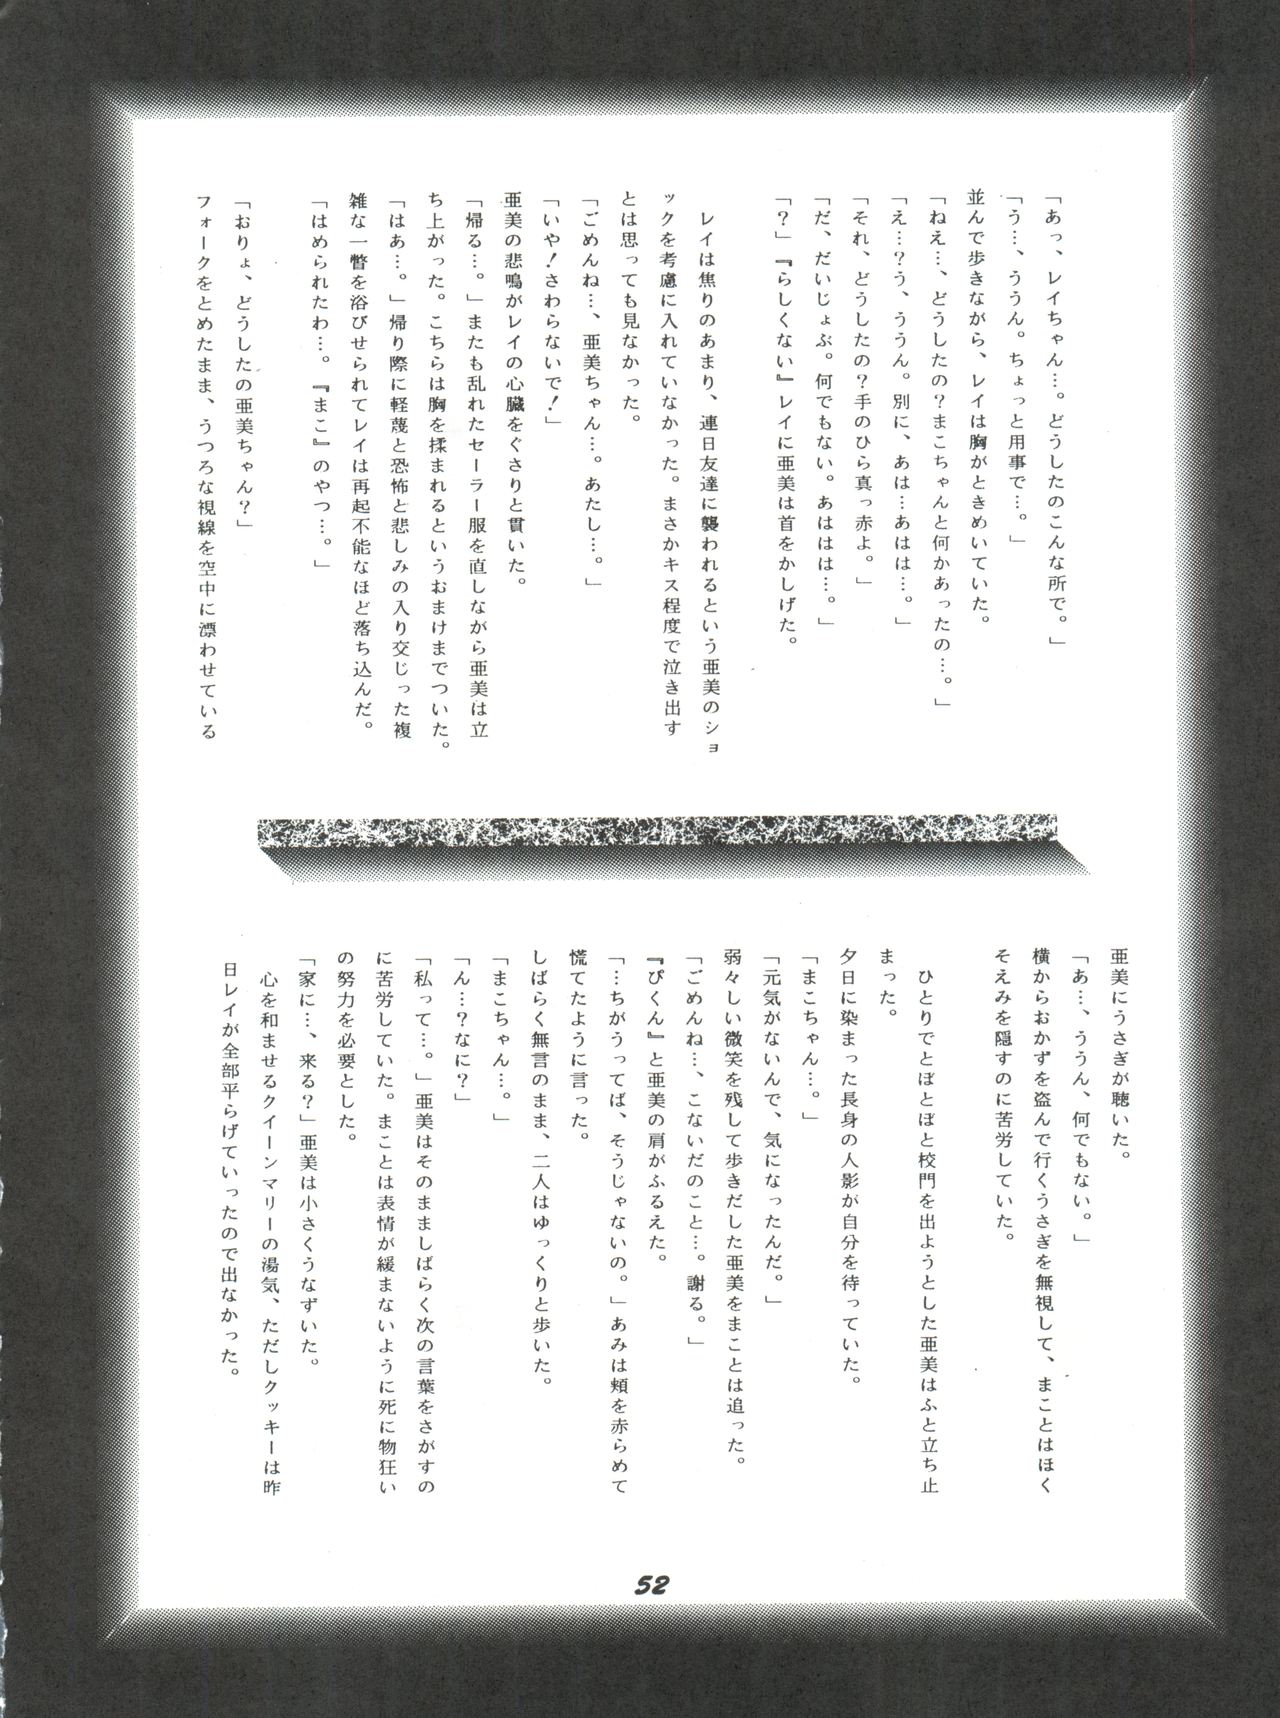 「あっ、レイちゃん…。どうしたのこんな所で。」
「う…、ううん。ちょっと用事で…。」
並んで歩きながら、レイは胸がときめいていた。
「ねえ…、どうしたの？まこちゃんと何かあったの…。」
「え…？う、ううん。別に、あは…あはは…。」
「それ、どうしたの？手のひら真っ赤よ。」
「だ、だいじょぶ。何でもない。あははは…。」
「？」『らしくない』レイに亜美は首をかしげた。
レイは焦りのあまり、連日友達に襲われるという亜美のショ
ックを考慮に入れていなかった。まさかキス程度で泣き出す
とは思っても見なかった。
「ごめんね…、亜美ちゃん…。あたし…。」
「いや！さわらないで！」
亜美の悲鳴がレイの心臓をぐさりと貫いた。
「帰る…。」またも乱れたセーラー服を直しながら亜美は立
ち上がった。こちらは胸を揉まれるというおまけまでついた。
「はあ…。」帰り際に軽蔑と恐怖と悲しみの入り交じった複
雑な一瞥を浴びせられてレイは再起不能なほど落ち込んだ。
「はめられたわ…。『まこ』のやつ…。」
「おりょ、どうしたの亜美ちゃん？」
フォークをとめたまま、うつろな視線を空中に漂わせている
亜美にうさぎが聴いた。
「あ…、ううん、何でもない。」
横からおかずを盗んで行くうさぎを無視して、まことはほく
そえみを隠すのに苦労していた。
ひとりでとぼとぼと校門を出ようとした亜美はふと立ち止
まった。
夕日に染まった長身の人影が自分を待っていた。
「まこちゃん…。」
「元気がないんで、気になったんだ。」
弱々しい微笑を残して歩きだした亜美をまことは追った。
「ごめんね…、こないだのこと…。謝る。」
『ぴくん』と亜美の肩がふるえた。
「…ちがうってば、そうじゃないの。」あみは頬を赤らめて
慌てたように言った。
しばらく無言のまま、二人はゆっくりと歩いた。
「まこちゃん…。」
「ん…？なに？」
「私って…。」亜美はそのまましばらく次の言葉をさがすの
に苦労していた。まことは表情が緩まないように死に物狂い
の努力を必要とした。
「家に…、来る？」亜美は小さくうなずいた。
心を和ませるクイーンマリーの湯気、ただしクッキーは昨
日レイが全部平らげていったので出なかった。
52